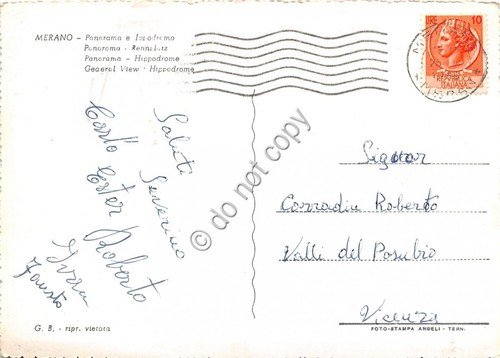 MERANO - Panorama e Ippodromo
Panorama - Rennplatz
Panorama - Hippodrome
General View - Hippodrome
LIRE 10
ITALIANA
Saluti
Severino
Carlo
Ester Roberto
Fausto
Signor
Corradin Roberto
Valli del Pasubio
Vicenza
G. B. - ripr. vietata
FOTO-STAMPA ANGELI - TERNI
© do not copy